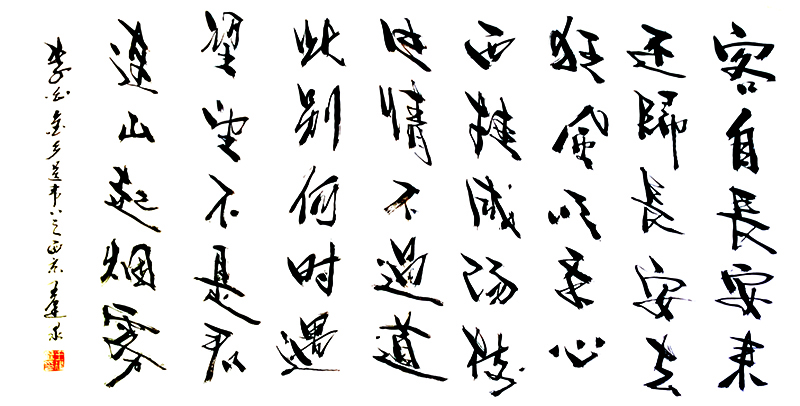 客自長安来
还歸長安去
狂風吹我心
西挂咸陽樹
此情不過道
此别何時遇
望望不見君
連山起烟雾
李白金乡送韦八之西京